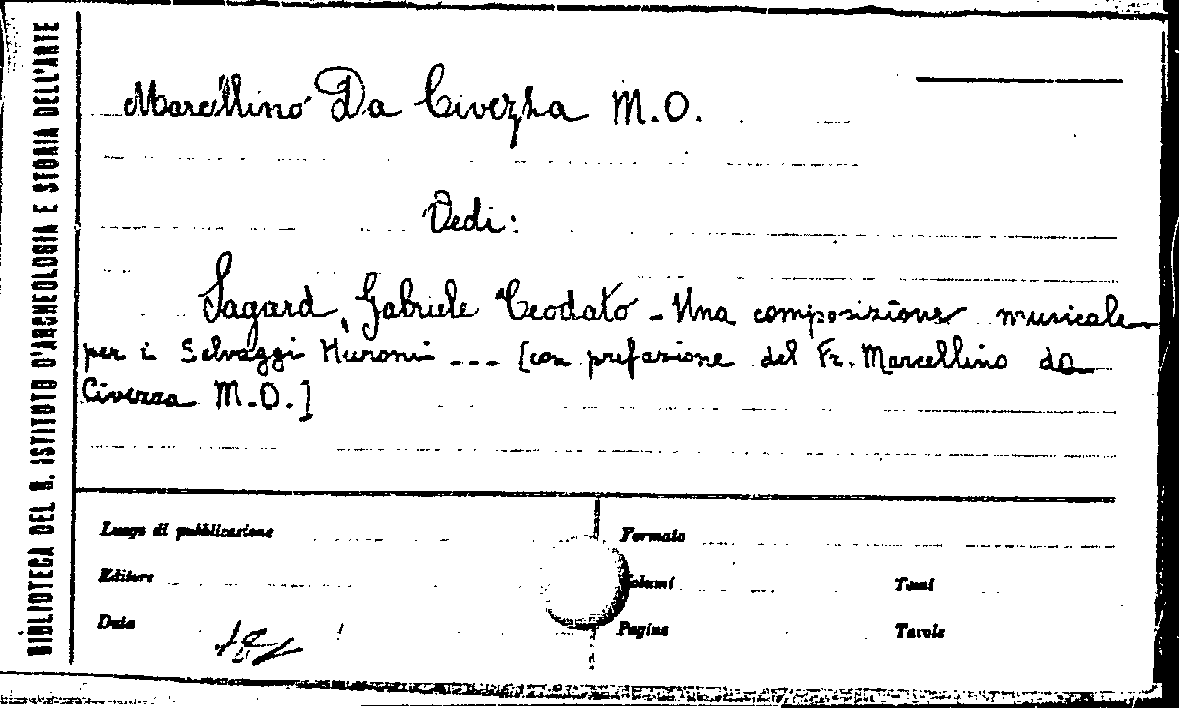 BIBLIOTECA DEL R. ISTITUTO D'ARCHEOLOGIA E STORIA DELL'ARTE
Marcellino Da Civezza M.O.
Vedi:
Sagard, Gabriele Teodato - Una composizione musicale
per i Selvaggi Huroni --- [con prefazione del Fr. Marcellino da
Civezza M.O.]
Luogo di pubblicazione
Formato
Editore
Volumi
Tomi
Data
Pagine
Tavole